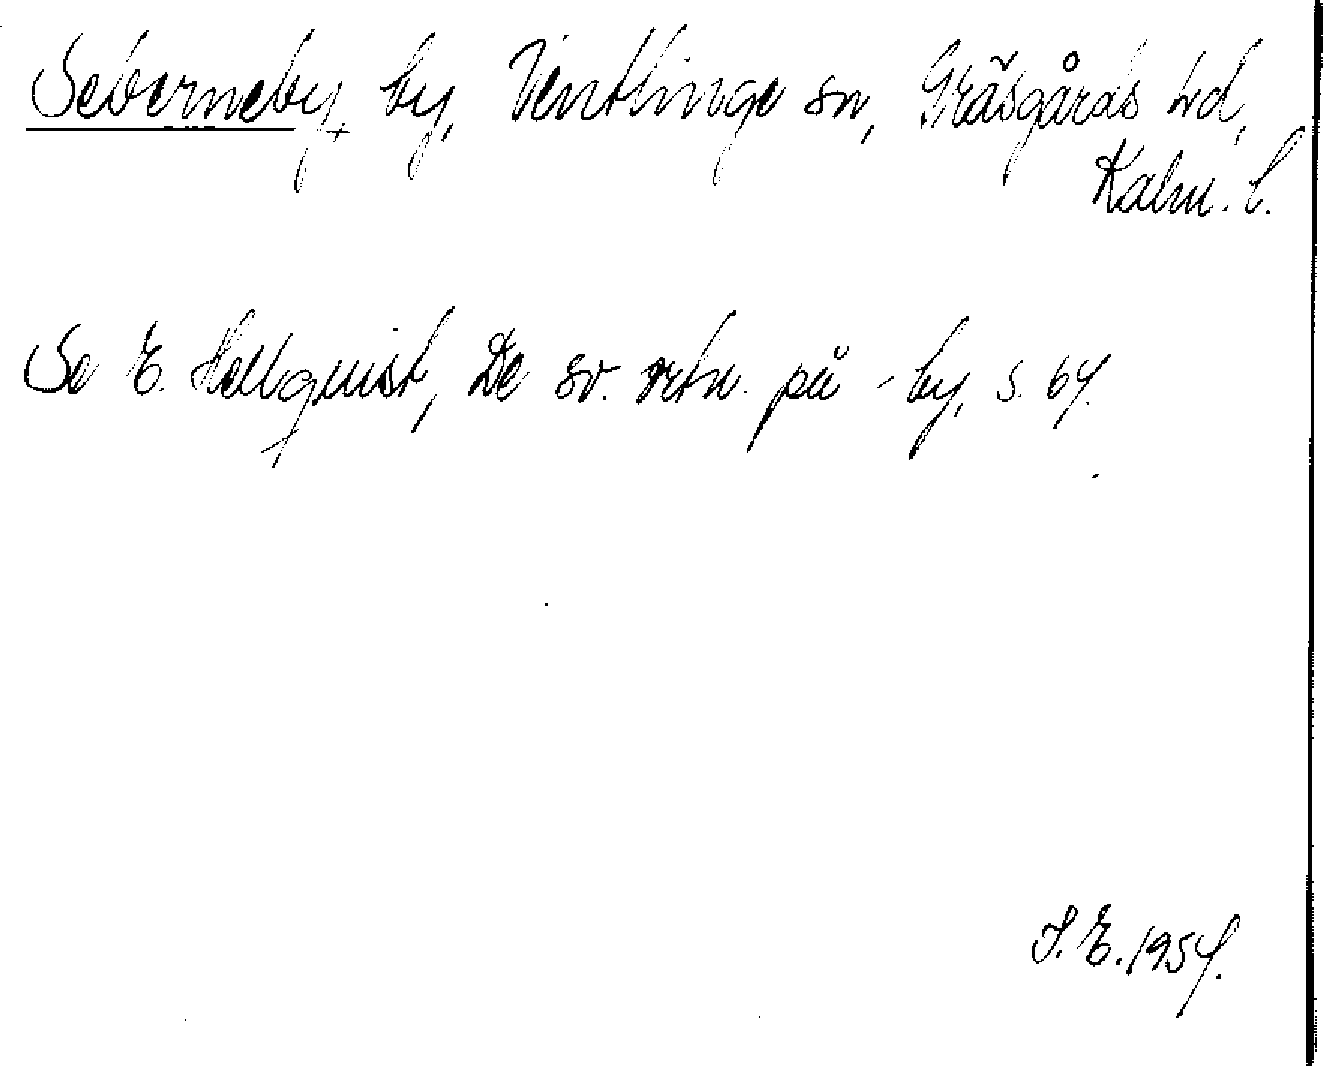 Seberneby, by, Ventlinge sn, Gräsgårds hd,
Kalm. l.
Se E. Hellquist, De sv. ortn. på -by, s. 64.
S. E. 1954.